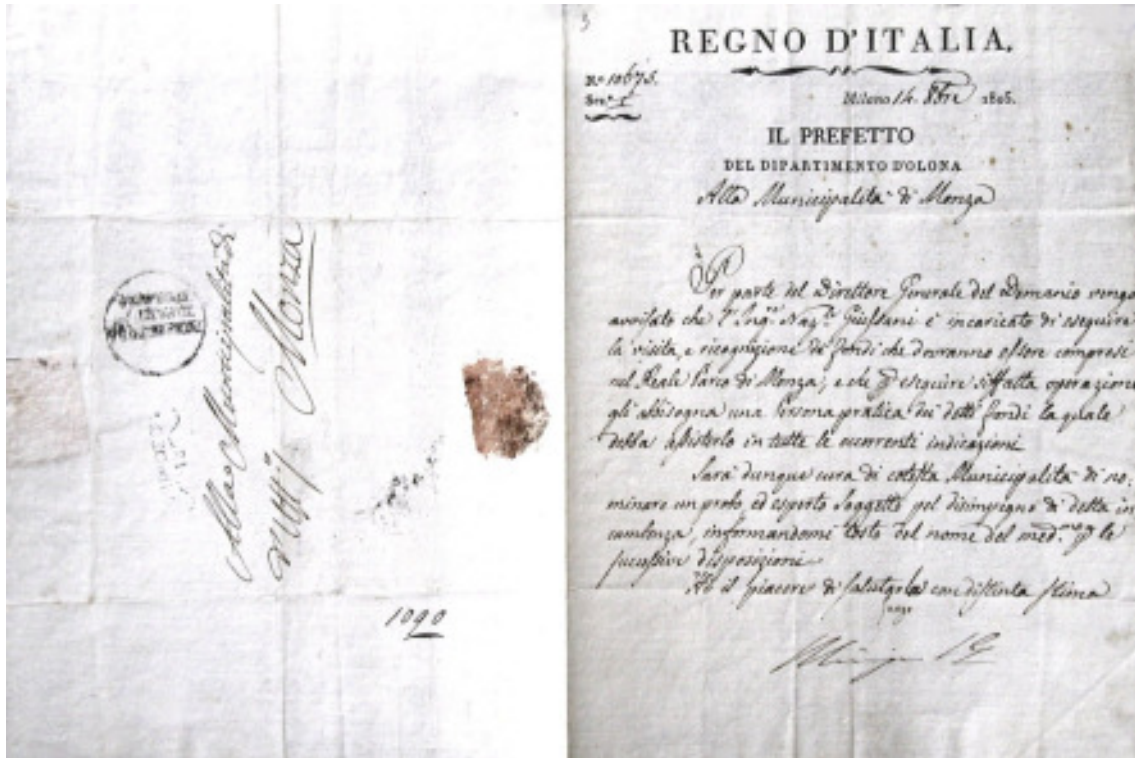 Alla Municipalità di
Monza
1090
REGNO D'ITALIA.
N.º 10675.
Sez.e I
Milano 14. 8bre 1805.
IL PREFETTO
DEL DIPARTIMENTO D'OLONA
Alla Municipalità di Monza
Per parte del Direttore Generale del Demanio vengo
avvisato che l'Ing.e Naz.e Giussani è incaricato di eseguire
la visita, e ricognizione de' fondi che dovranno essere compresi
nel Reale Parco di Monza; e che p eseguire siffatta operazione
gli abbisogna una Persona pratica dei detti fondi la quale
debba assisterlo in tutte le occorrenti indicazioni
Sarà dunque cura di cotesta Municipalità di no:
minare un probo ed esperto Soggetto pel disimpegno di detta in
cumbenza, informandomi tosto del nome del med.mo p le
successive disposizioni.
Ho il piacere di salutarla con distinta stima